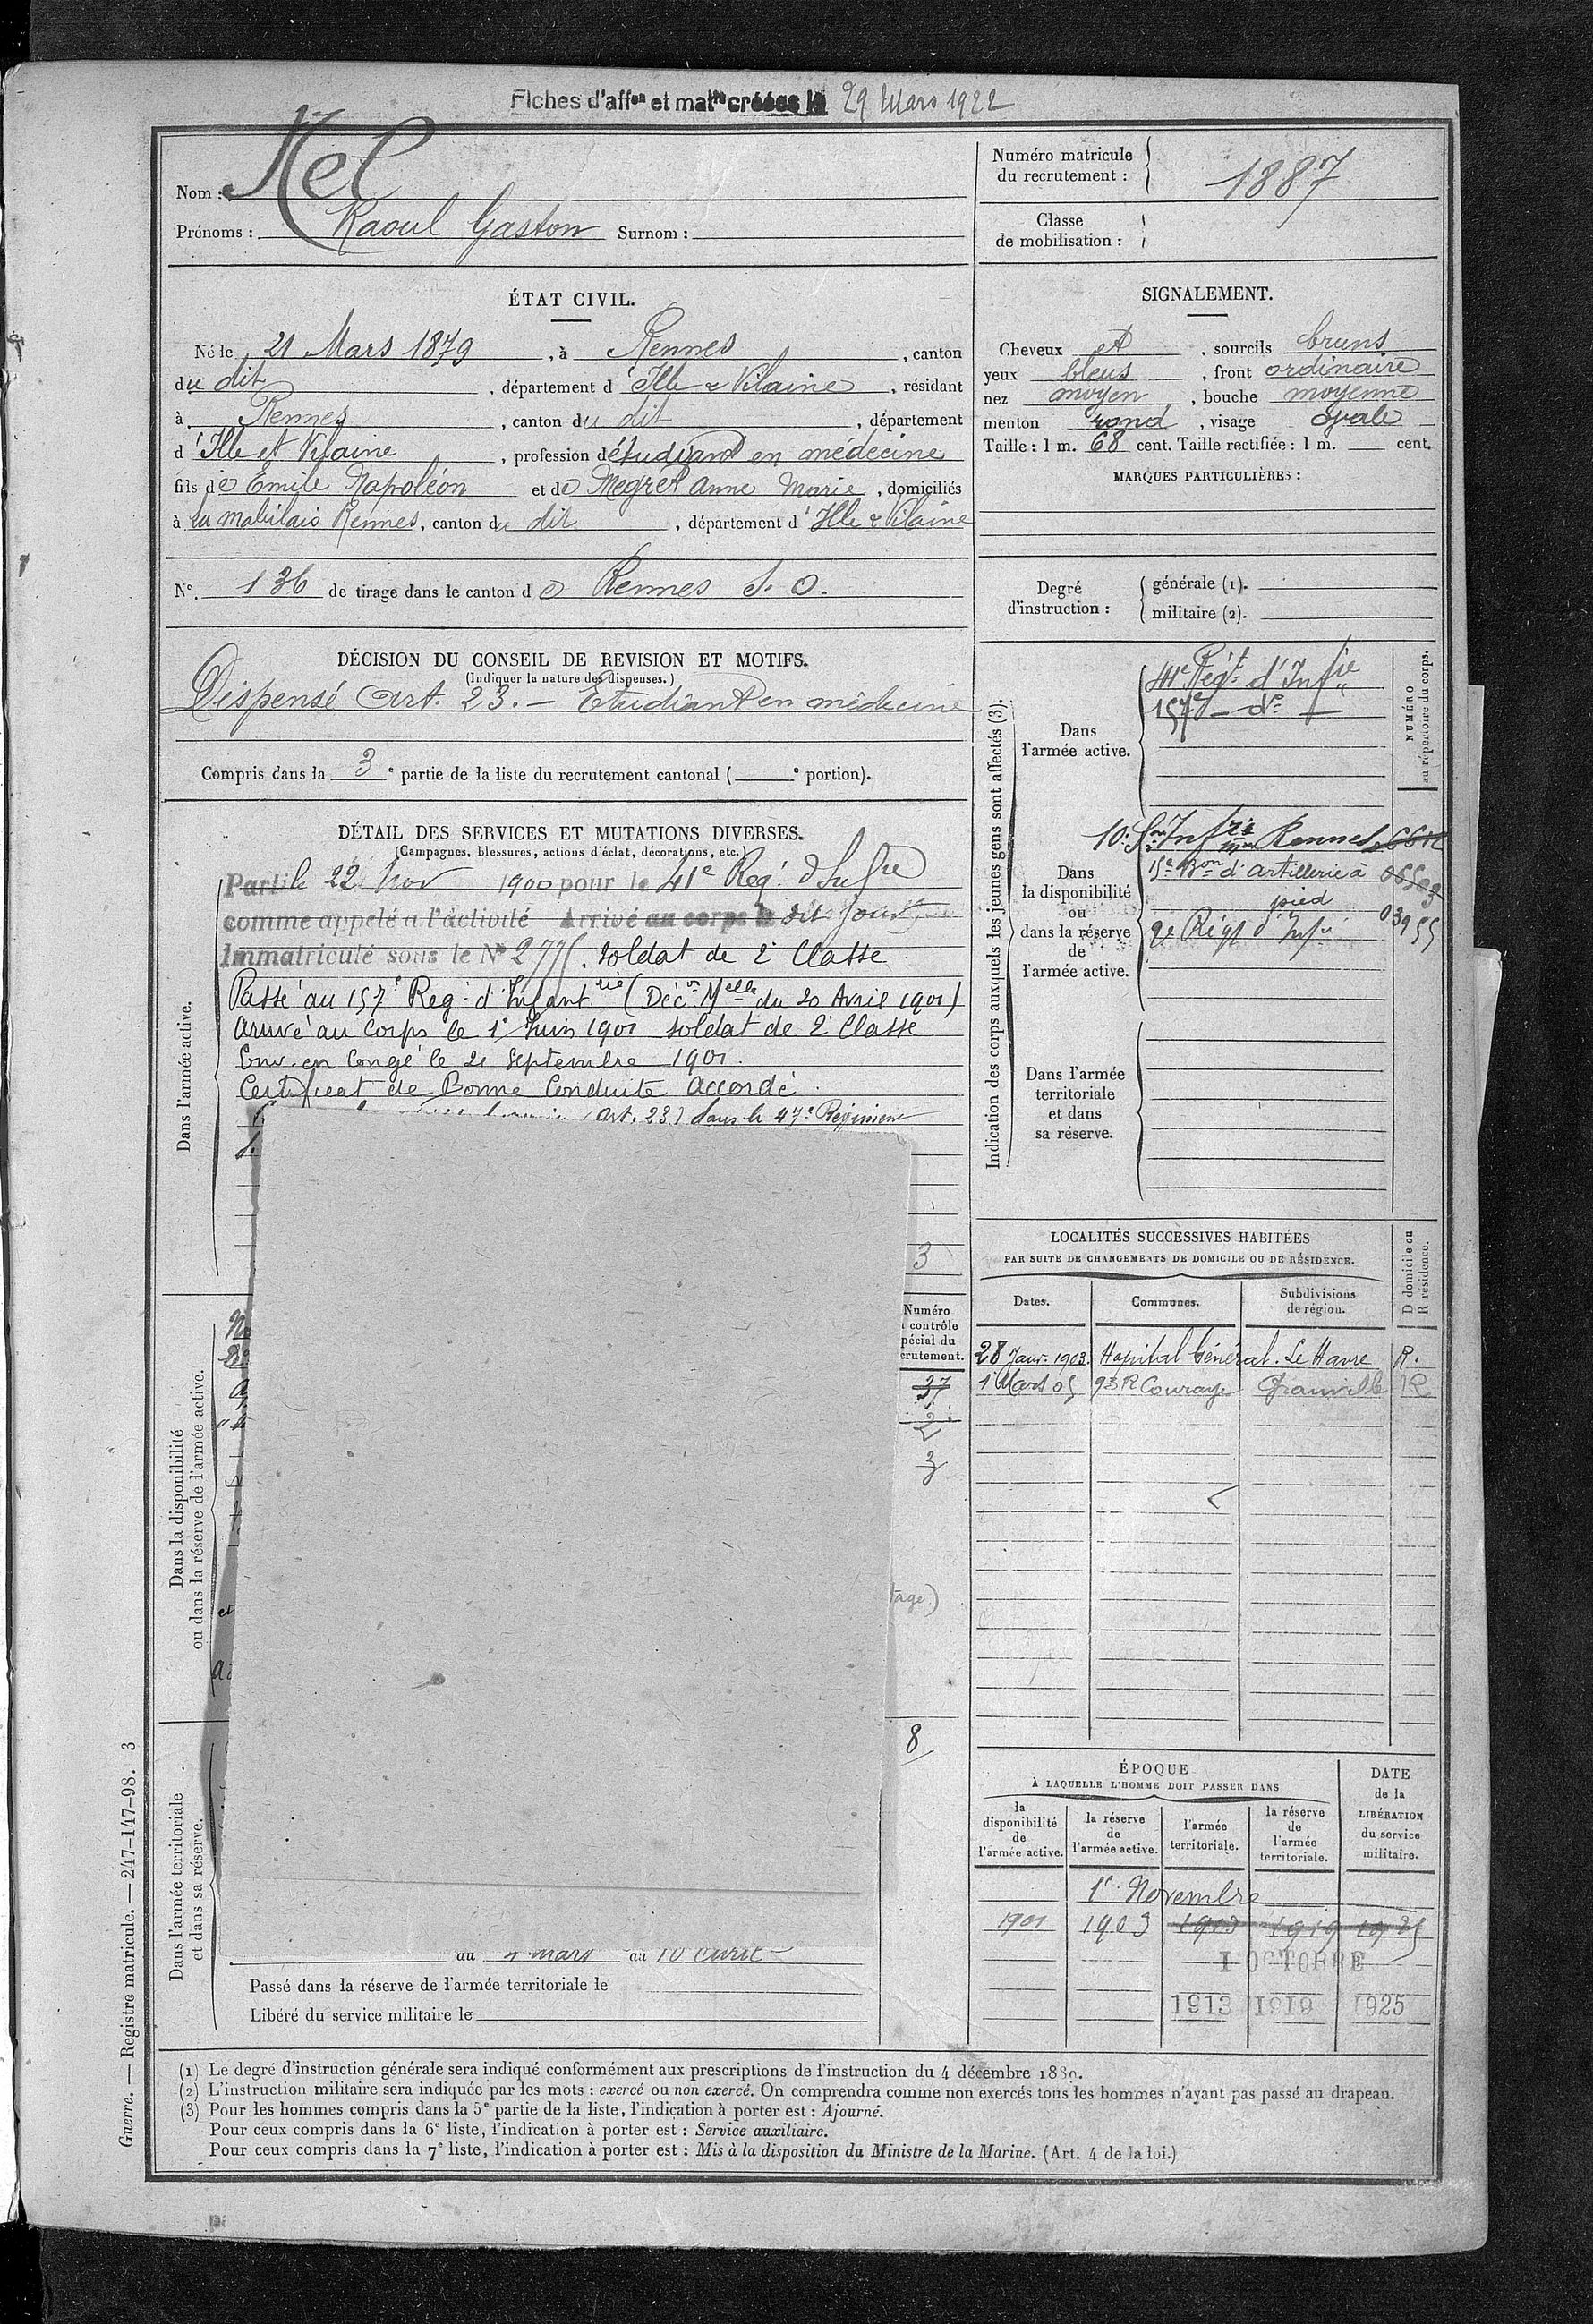 Fiches d'aff^on et mat^le créées le 29 Mars 1922
Nom : Nel
Prénoms : Raoul Gaston Surnom :
Numéro matricule du recrutement : 1887
Classe de mobilisation :
ÉTAT CIVIL.
Né le 21 Mars 1879, à Rennes, canton
du dit, département d'Ille & Vilaine, résidant
à Rennes, canton du dit, département
d'Ille et Vilaine, profession d'étudiant en médecine
fils de Emile Napoléon et de Megret Anne Marie, domiciliés
à la mabilais Rennes, canton du dit, département d'Ille & Vilaine
N° 136 de tirage dans le canton de Rennes S. O.
SIGNALEMENT.
Cheveux et, sourcils bruns
yeux bleus, front ordinaire
nez moyen, bouche moyenne
menton rond, visage ovale
Taille : 1 m. 68 cent. Taille rectifiée : 1 m. cent.
MARQUES PARTICULIÈRES :
Degré d'instruction : générale (1).
militaire (2).
DÉCISION DU CONSEIL DE REVISION ET MOTIFS.
(Indiquer la nature des dispenses.)
Dispensé Art. 23. – Etudiant en médecine
Compris dans la 3e partie de la liste du recrutement cantonal ( e portion).
DÉTAIL DES SERVICES ET MUTATIONS DIVERSES.
(Campagnes, blessures, actions d'éclat, décorations, etc.)
Dans l'armée active.
Parti le 22 Nov 1900 pour le 41e Reg. d'Infie
comme appelé à l'activité Arrivé au corps le dit jour
Immatriculé sous le N° 2775. soldat de 2e Classe
Passé au 157e Reg. d'Infanterie (Décon Melle du 20 Avril 1901)
Arrivé au Corps le 1er Juin 1901 soldat de 2e Classe
Env. en Congé le 21 Septembre 1901.
Certificat de Bonne Conduite accordé.
(art. 23) dans le 47e Régiment
3
Dans la disponibilité ou dans la réserve de l'armée active.
Numéro
contrôle
pécial du
crutement.
37
2
3
tage)
Dans l'armée territoriale et dans sa réserve.
8
du 4 mars au 10 avril
Passé dans la réserve de l'armée territoriale le
Libéré du service militaire le
Indication des corps auxquels les jeunes gens sont affectés (3).
NUMÉRO au répertoire du corps.
Dans l'armée active.
41e Régt d'Infie
157e – do –
Dans la disponibilité ou dans la réserve de l'armée active.
10e Son Infrie Mre Rennes
15e Bon d'artillerie à pied 06503
2e Régt d'Infie 03955
Dans l'armée territoriale et dans sa réserve.
LOCALITÉS SUCCESSIVES HABITÉES
PAR SUITE DE CHANGEMENTS DE DOMICILE OU DE RÉSIDENCE.
Dates. Communes. Subdivisions de région. D domicile ou R résidence.
28 Janv. 1903. Hopital Général. Le Havre R.
1 Mars 05 93 R Couraye Granville R
ÉPOQUE
À LAQUELLE L'HOMME DOIT PASSER DANS
la disponibilité de l'armée active.
la réserve de l'armée active.
l'armée territoriale.
la réserve de l'armée territoriale.
DATE de la LIBÉRATION du service militaire.
1er Novembre
1901 1903 1913 1919 1925
1 OCTOBRE
1913 1919 1925
(1) Le degré d'instruction générale sera indiqué conformément aux prescriptions de l'instruction du 4 décembre 1889.
(2) L'instruction militaire sera indiquée par les mots : exercé ou non exercé. On comprendra comme non exercés tous les hommes n'ayant pas passé au drapeau.
(3) Pour les hommes compris dans la 5e partie de la liste, l'indication à porter est : Ajourné.
Pour ceux compris dans la 6e liste, l'indication à porter est : Service auxiliaire.
Pour ceux compris dans la 7e liste, l'indication à porter est : Mis à la disposition du Ministre de la Marine. (Art. 4 de la loi.)
Guerre. — Registre matricule. — 247-147-98. 3